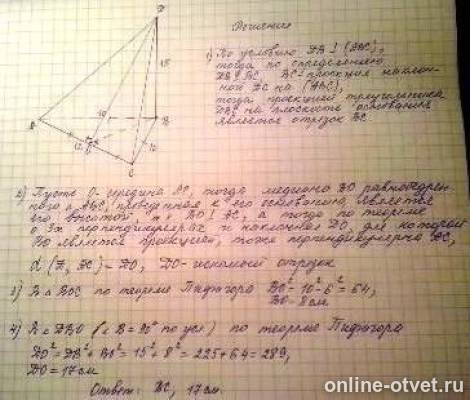 Решение
1) По условию DB ⊥ (ABC),
тогда по определению
DB ⊥ BC, BC - проекция наклон-
ной DC на (ABC),
тогда проекцией треугольника
DBC на плоскость основания
является отрезок BC
D
15
A
10
B
12
O
C
10
2) Пусть O - середина AC, тогда медиана BO равнобедрен-
ного △ABC, проведенная к его основанию, является
его высотой, т.е. BO ⊥ AC, а тогда по теореме
о 3х перпендикулярах и наклонная DO, для которой
BO является проекцией, тоже перпендикулярна AC,
d (D, AC) = DO, DO - искомый отрезок
3) В △ BOC по теореме Пифагора BO² = 10² - 6² = 64,
BO = 8 см
4) В △ DBO (∠B = 90° по усл) по теореме Пифагора
DO² = DB² + BO² = 15² + 8² = 225 + 64 = 289,
DO = 17 см
Ответ: BC, 17 см.
online-otvet.ru